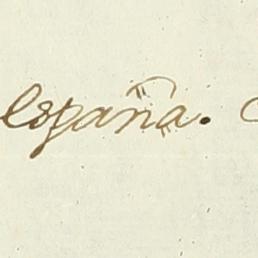 España.